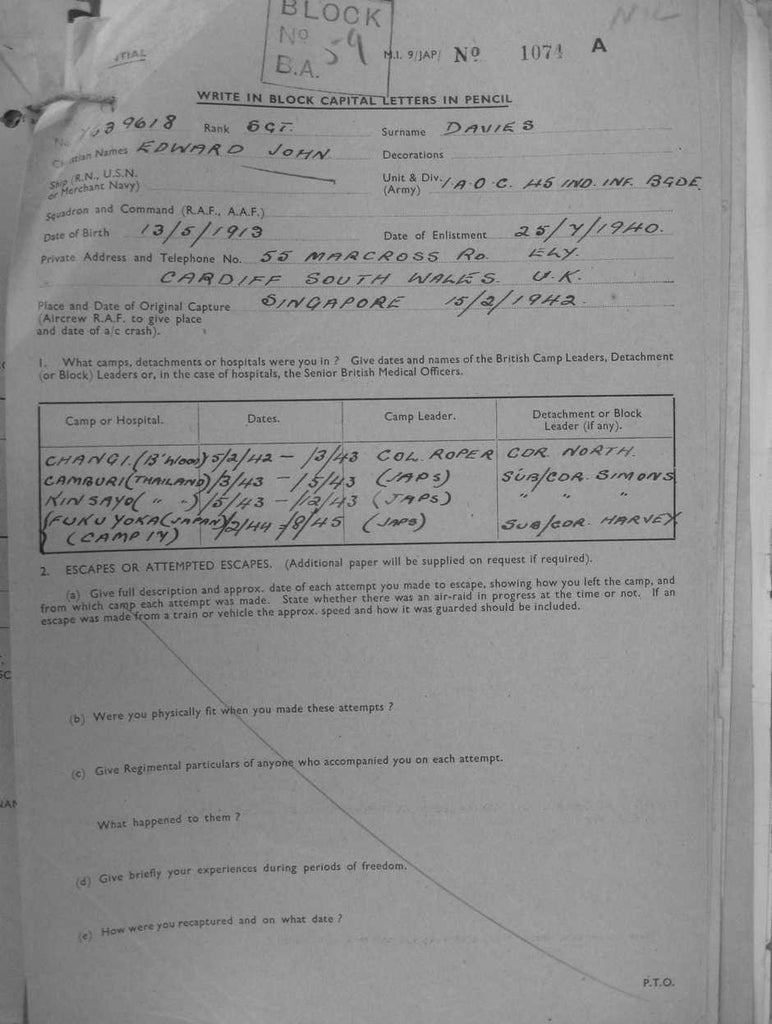 BLOCK
No 59
B.A.
NIL
TIAL
M.I. 9/JAP/ No 1074 A
WRITE IN BLOCK CAPITAL LETTERS IN PENCIL
No. 9618 Rank SGT. Surname DAVIES
Christian Names EDWARD JOHN Decorations
Ship (R.N., U.S.N. or Merchant Navy) Unit & Div. (Army) I.A.O.C. 45 IND. INF. BGDE.
Squadron and Command (R.A.F., A.A.F.)
Date of Birth 13/5/1913 Date of Enlistment 25/7/1940.
Private Address and Telephone No. 55 MARCROSS RD. ELY.
CARDIFF SOUTH WALES. U.K.
Place and Date of Original Capture SINGAPORE 15/2/1942.
(Aircrew R.A.F. to give place
and date of a/c crash).
1. What camps, detachments or hospitals were you in ? Give dates and names of the British Camp Leaders, Detachment
(or Block) Leaders or, in the case of hospitals, the Senior British Medical Officers.
Camp or Hospital. Dates. Camp Leader. Detachment or Block Leader (if any).
CHANGI. (B'WOOD) 5/2/42 - /3/43 COL. ROPER CDR. NORTH.
CAMBURI (THAILAND) /3/43 - /5/43 (JAPS) SUB/CDR. SIMONS
KINSAYO ( " " ) /5/43 - /12/43 (JAPS) " " "
FUKUYOKA (JAPAN) /2/44 - /8/45 (JAPS) SUB/CDR. HARVEY
(CAMP 17)
2. ESCAPES OR ATTEMPTED ESCAPES. (Additional paper will be supplied on request if required).
(a) Give full description and approx. date of each attempt you made to escape, showing how you left the camp, and
from which camp each attempt was made. State whether there was an air-raid in progress at the time or not. If an
escape was made from a train or vehicle the approx. speed and how it was guarded should be included.
(b) Were you physically fit when you made these attempts ?
(c) Give Regimental particulars of anyone who accompanied you on each attempt.
What happened to them ?
(d) Give briefly your experiences during periods of freedom.
(e) How were you recaptured and on what date ?
P.T.O.